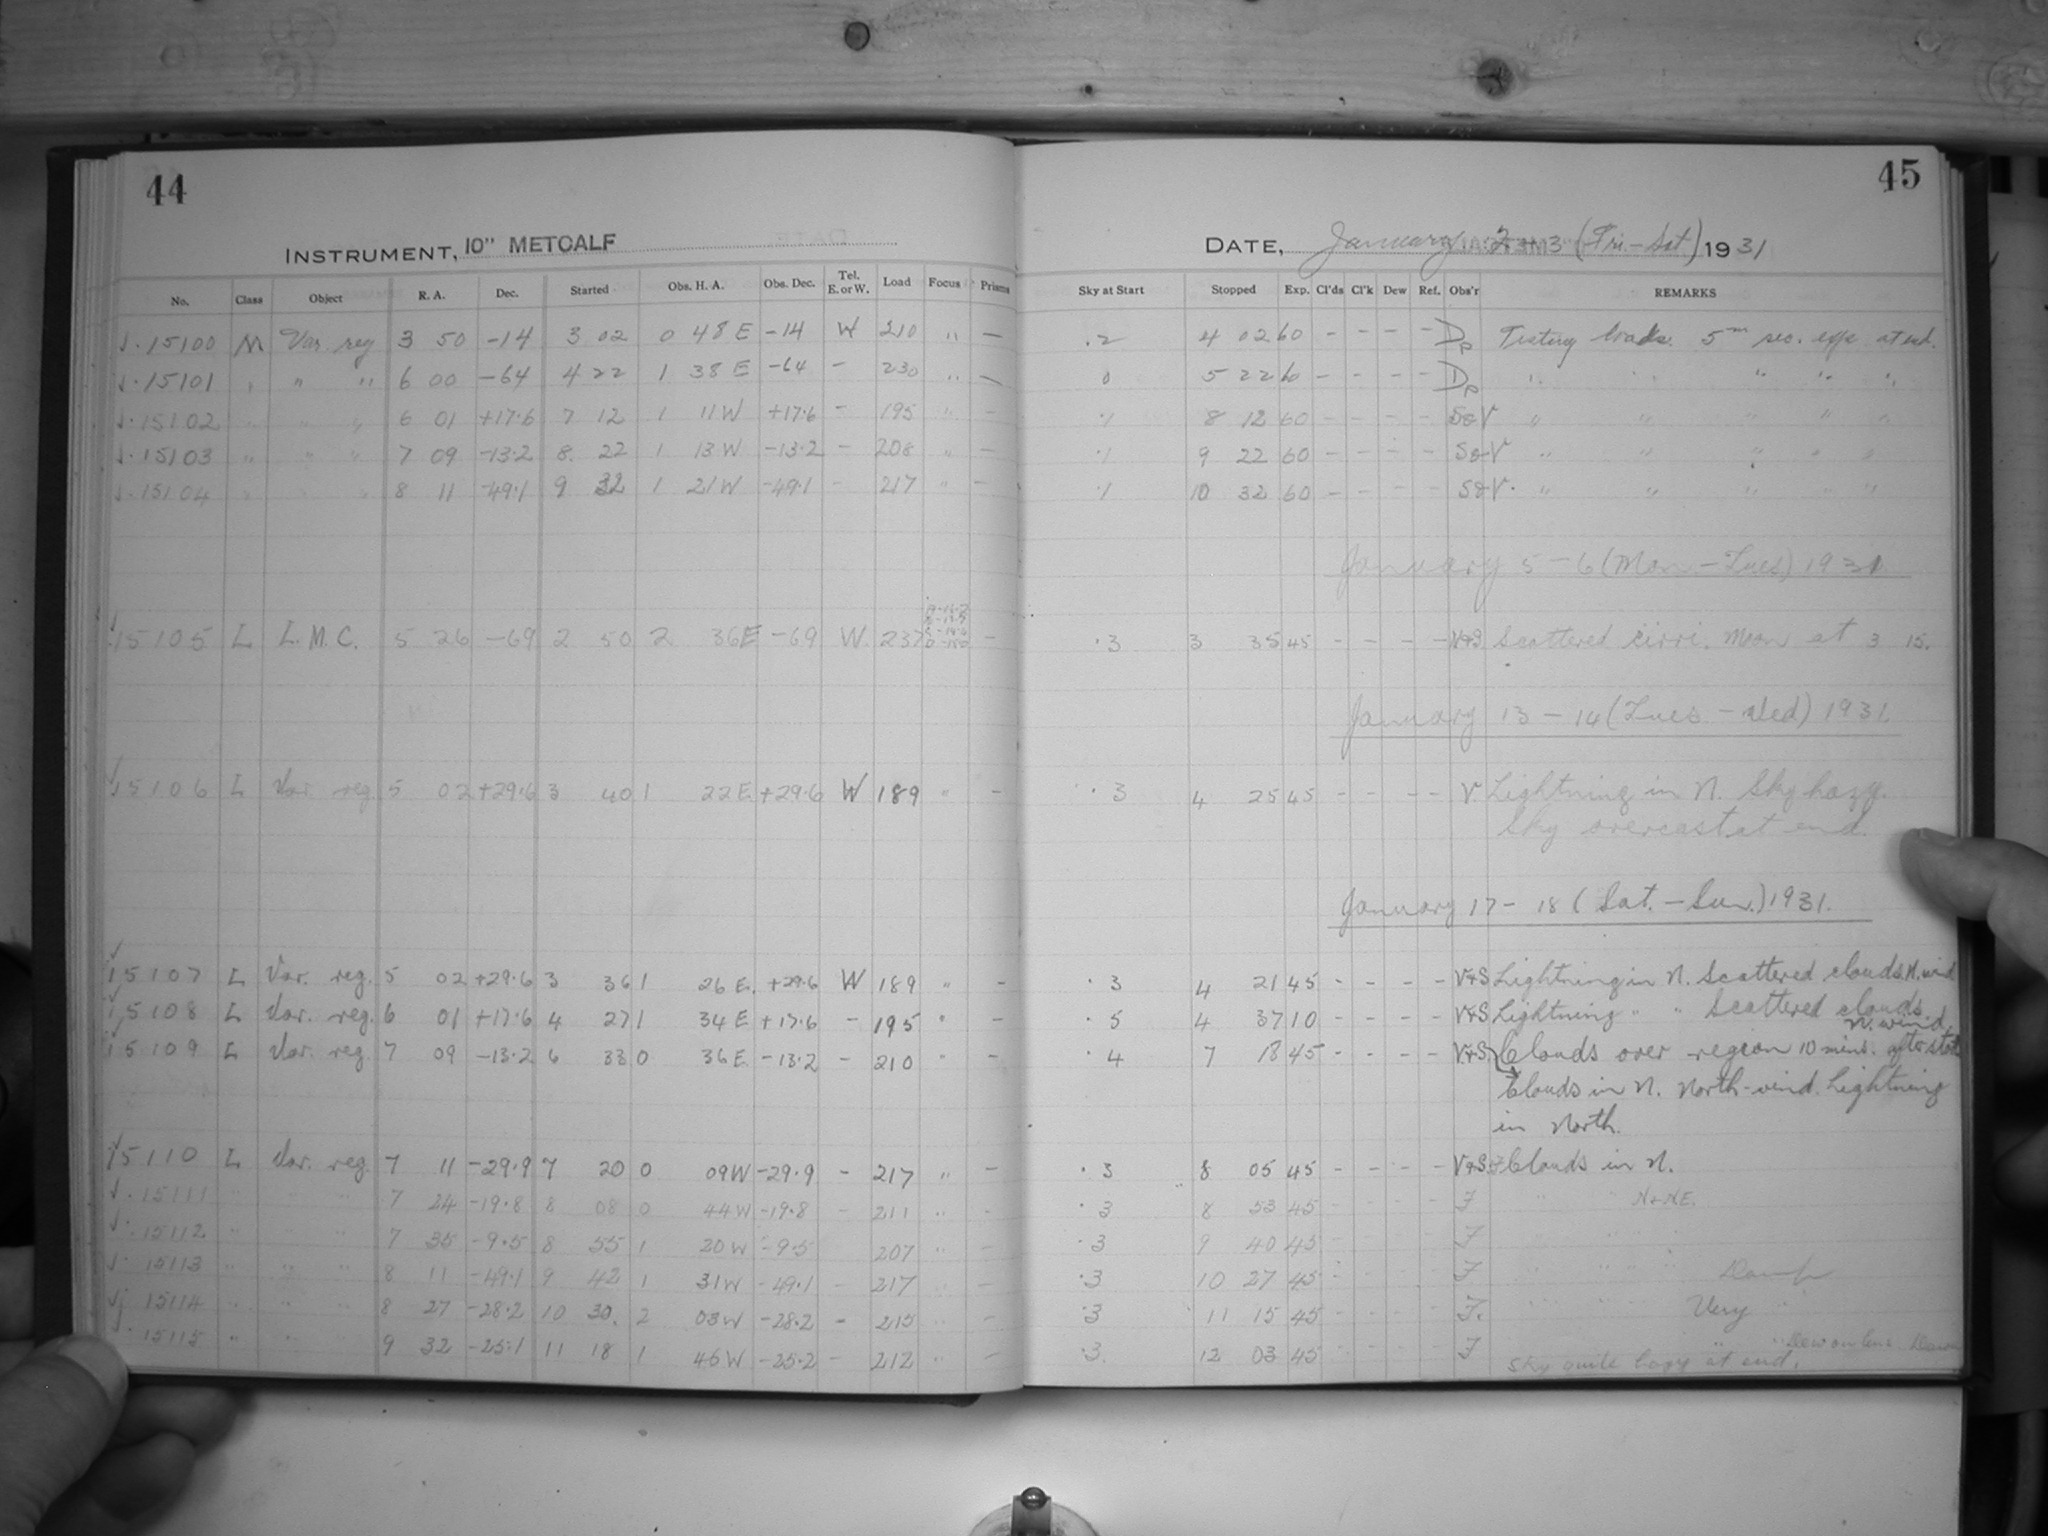 44
INSTRUMENT, 10" METCALF
No. Class Object R. A. Dec. Started Obs. H. A. Obs. Dec. Tel. E. or W. Load Focus Prisms
15100 M Var. reg 3 50 -14 3 02 0 48 E -14 W 210 " —
15101 " " " 6 00 -64 4 22 1 38 E -64 - 230 " —
15102 " " " 6 01 +17.6 7 12 1 11 W +17.6 - 195 " -
15103 " " " 7 09 -13.2 8 22 1 13 W -13.2 - 208 " -
15104 " " " 8 11 -49.1 9 32 1 21 W -49.1 - 217 " -
15105 L L. M. C. 5 26 -69 2 50 2 36 E -69 W. 237 -
15106 L Var. reg. 5 02 +29.6 3 40 1 22 E. +29.6 W 189 " -
15107 L Var. reg. 5 02 +29.6 3 36 1 26 E. +29.6 W 189 " -
15108 L Var. reg. 6 01 +17.6 4 27 1 34 E +17.6 - 195 " -
15109 L Var. reg. 7 09 -13.2 6 33 0 36 E -13.2 - 210 " -
15110 L Var. reg. 7 11 -29.9 7 20 0 09 W -29.9 - 217 " -
15111 " " " 7 24 -19.8 8 08 0 44 W -19.8 - 211 " -
15112 " " " 7 35 -9.5 8 55 1 20 W -9.5 207 " -
15113 " " " 8 11 -49.1 9 42 1 31 W -49.1 - 217 " -
15114 " " " 8 27 -28.2 10 30. 2 03 W -28.2 - 215 " -
15115 " " 9 32 -25.1 11 18 1 46 W -25.2 - 212 " -
45
DATE, January 2-3 (Fri.-Sat.) 1931
Sky at Start Stopped Exp. Cl'ds Cl'k Dew Ref. Obs'r REMARKS
.2 4 02 60 - - - - Dp Testing loads. 5m sec. exp. at end.
0 5 22 60 - - - - Dp " " " " "
.1 8 12 60 - - - - S&V " " " " "
.1 9 22 60 - - - - S&V " " " " "
.1 10 32 60 - - - - S&V. " " " " "
January 5-6 (Mon.-Tues) 1931
.3 3 35 45 - - - - V&S Scattered cirri. Moon at 3 15.
January 13-14 (Tues.-Wed) 1931.
.3 4 25 45 - - - - V. Lightning in N. Sky hazy.
Sky overcast at end.
January 17-18 (Sat.-Sun.) 1931.
.3 4 21 45 - - - - V&S Lightning in N. Scattered clouds N. wind
.5 4 37 10 - - - - V&S Lightning " " Scattered clouds
N. wind.
.4 7 18 45 - - - - V&S. Clouds over region 10 mins. after start
Clouds in N. North-wind. Lightning
in North.
.3 8 05 45 - - - - V&S. Clouds in N.
.3 8 53 45 - - - - F " " N&NE.
.3 9 40 45 - - - - F " " "
.3 10 27 45 - - - - F " " " Damp
.3 11 15 45 - - - - F. " " " Very "
.3. 12 03 45 - - - - F " " Dew on lens. Dawn
Sky quite hazy at end.